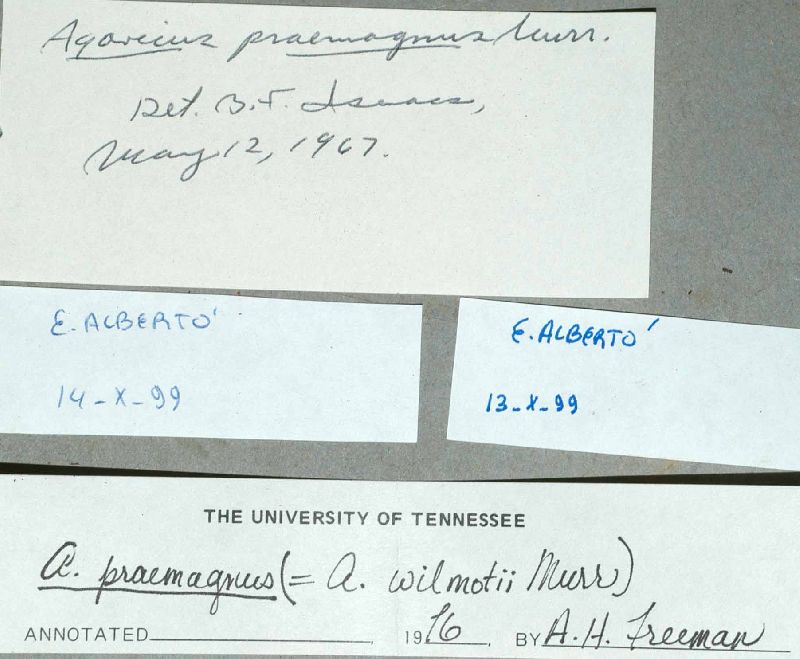 Agaricus praemagnus Murr.
Det. B.F. Isaacs,
May 12, 1967.
E. ALBERTÓ
14-X-99
E. ALBERTÓ
13-X-99
THE UNIVERSITY OF TENNESSEE
A. praemagnus (= A. wilmotii Murr)
ANNOTATED 1976 BY A.H. Freeman